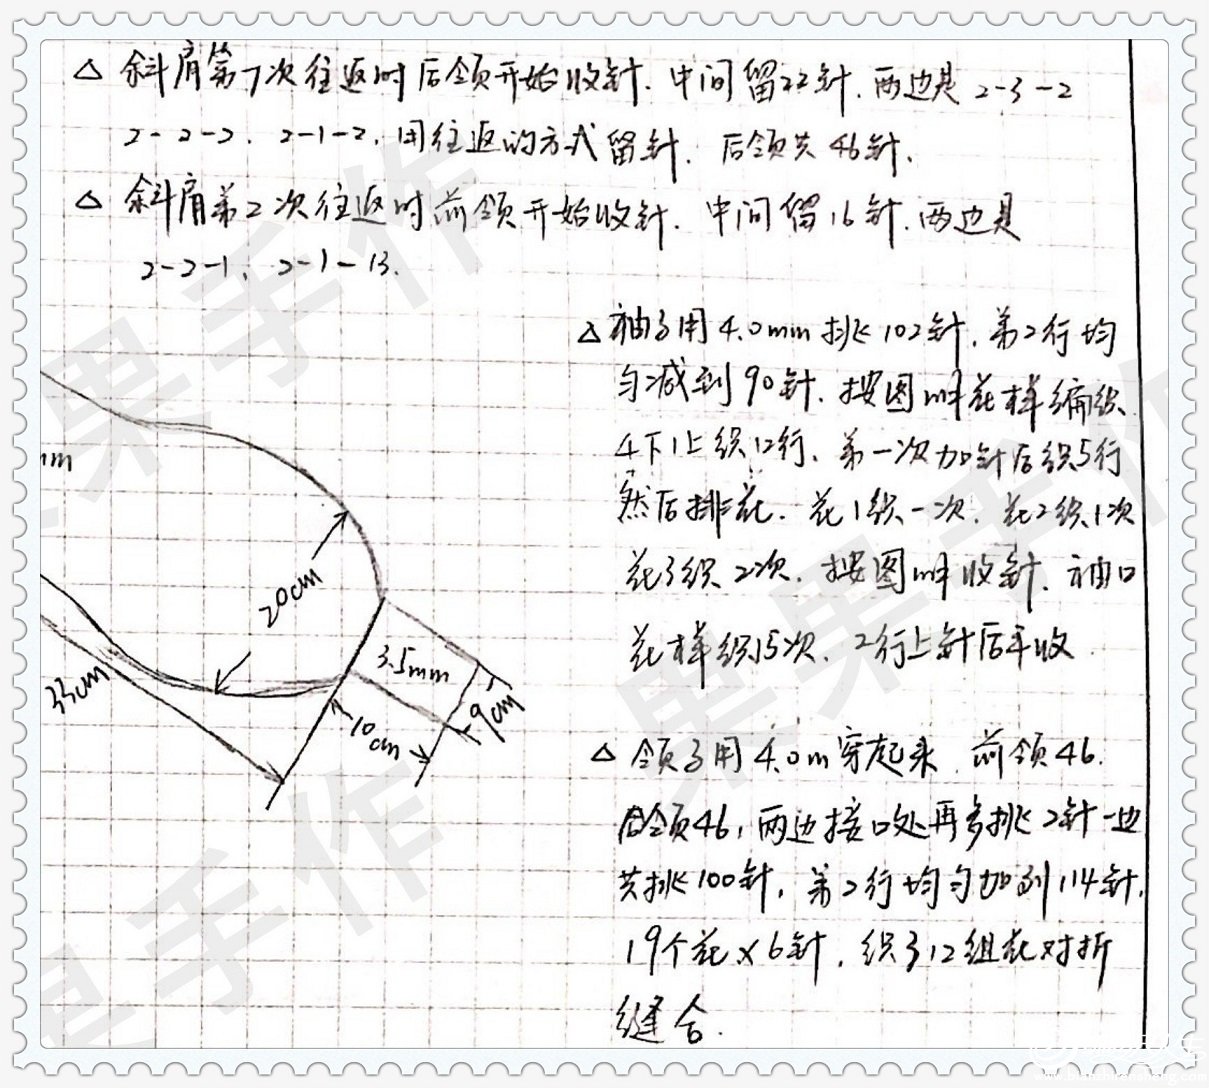 △ 斜肩第7次往返时后领开始收针. 中间留22针. 两边是 2-3-2
2-2-2. 2-1-2. 用往返的方式留针. 后领共46针.
△ 斜肩第2次往返时前领开始收针. 中间留16针. 两边是
2-2-1. 2-1-13.
△ 袖子用4.0mm挑102针. 第2行均
匀减到90针. 按图解花样编织
4下1上织12行. 第一次加针后织5行
然后排花. 花1织一次. 花2织1次
花3织2次. 按图解收针. 袖口
花样织15次. 2行上针后平收
mm
20cm
33cm
3.5mm
10cm
9cm
△ 领子用4.0m穿起来. 前领46.
后领46, 两边接口处再多挑2针一边
共挑100针. 第2行均匀加到114针.
19个花×6针. 织了12组花对折
缝合.
果果手作
果果手作
果果手作